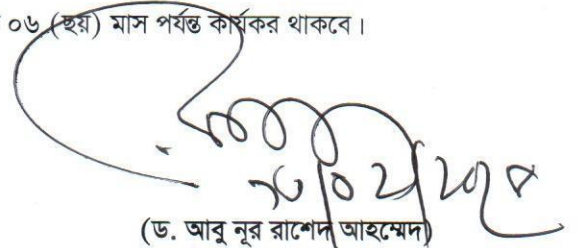 ০৬ (ছয়) মাস পর্যন্ত কার্যকর থাকবে।
(ড. আবু নূর রাশেদ আহম্মেদ)